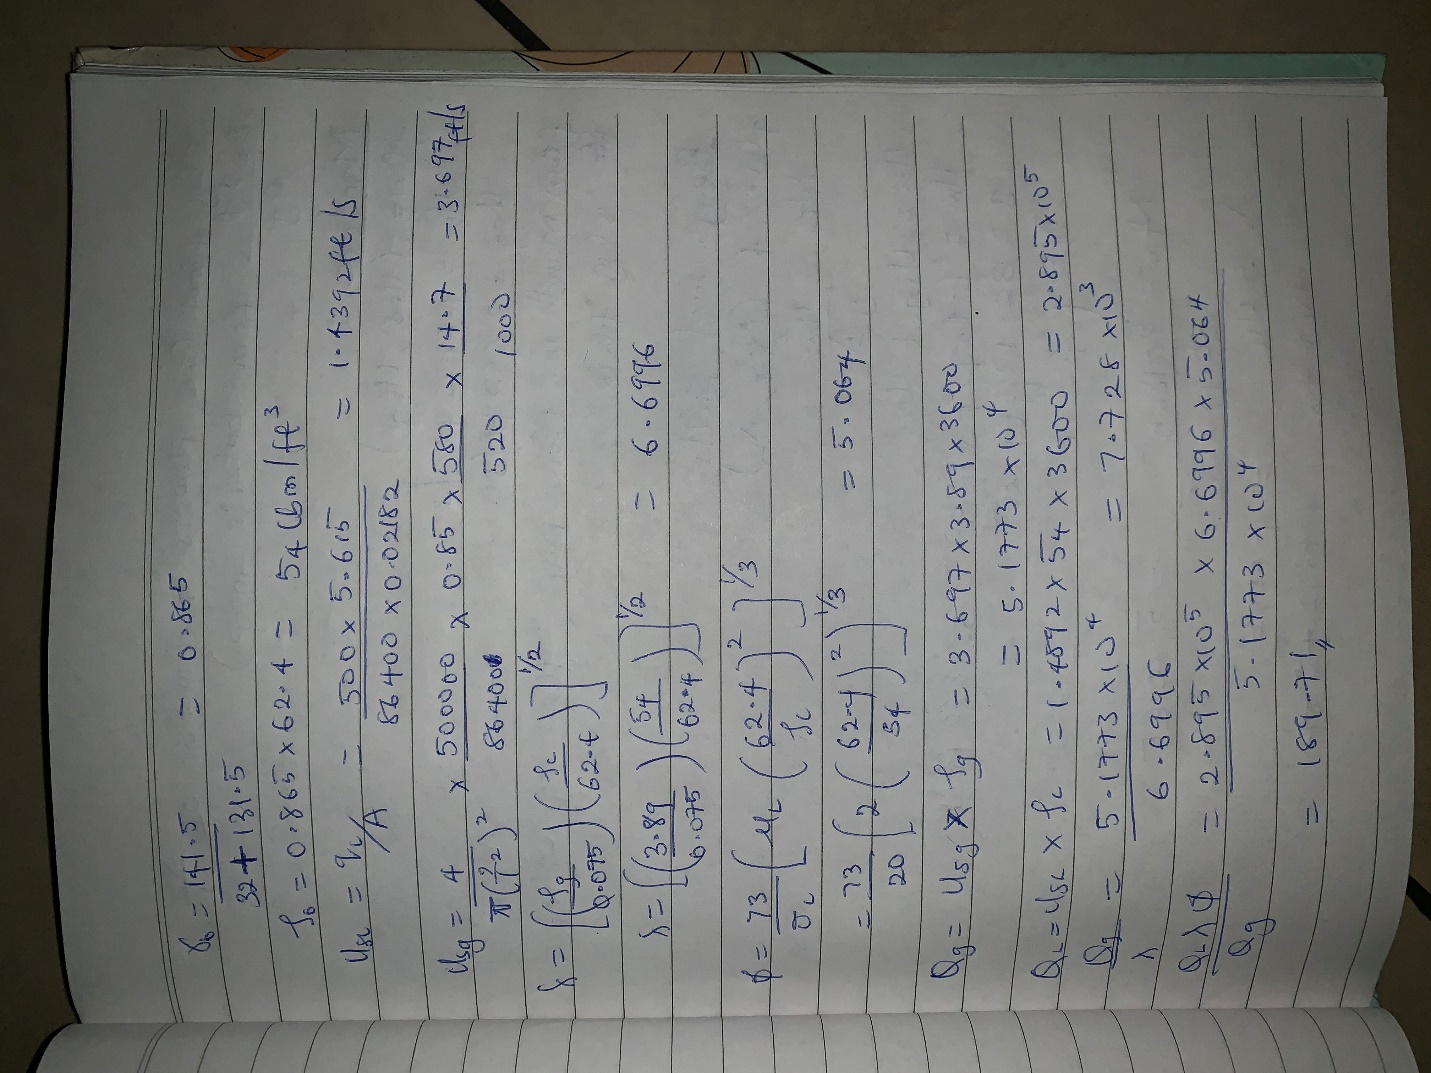 γo = 141.5 / 32 + 131.5 = 0.865
ρo = 0.865 × 62.4 = 54 lbm/ft³
Usl = qL/A = 500 × 5.615 / 86400 × 0.02182 = 1.4392 ft/s
Usg = 4 / π(2/12)² × 500000 / 86400 × 0.85 × 580 / 520 × 14.7 / 1000 = 3.697 ft/s
λ = [(ρg / 0.075)(ρL / 62.4)]^1/2
λ = [(3.89 / 0.075)(54 / 62.4)]^1/2 = 6.6996
φ = 73 / σL [μL (62.4 / ρL)²]^1/3
= 73 / 20 [2 (62.4 / 54)²]^1/3 = 5.064
Qg = Usg × ρg = 3.697 × 3.89 × 3600
= 5.1773 × 10⁴
QL = UsL × ρL = 1.4892 × 54 × 3600 = 2.895 × 10⁵
Qg / λ = 5.1773 × 10⁴ / 6.6996 = 7.728 × 10³
QLλφ / Qg = 2.895 × 10⁵ × 6.6996 × 5.064 / 5.1773 × 10⁴
= 189.71